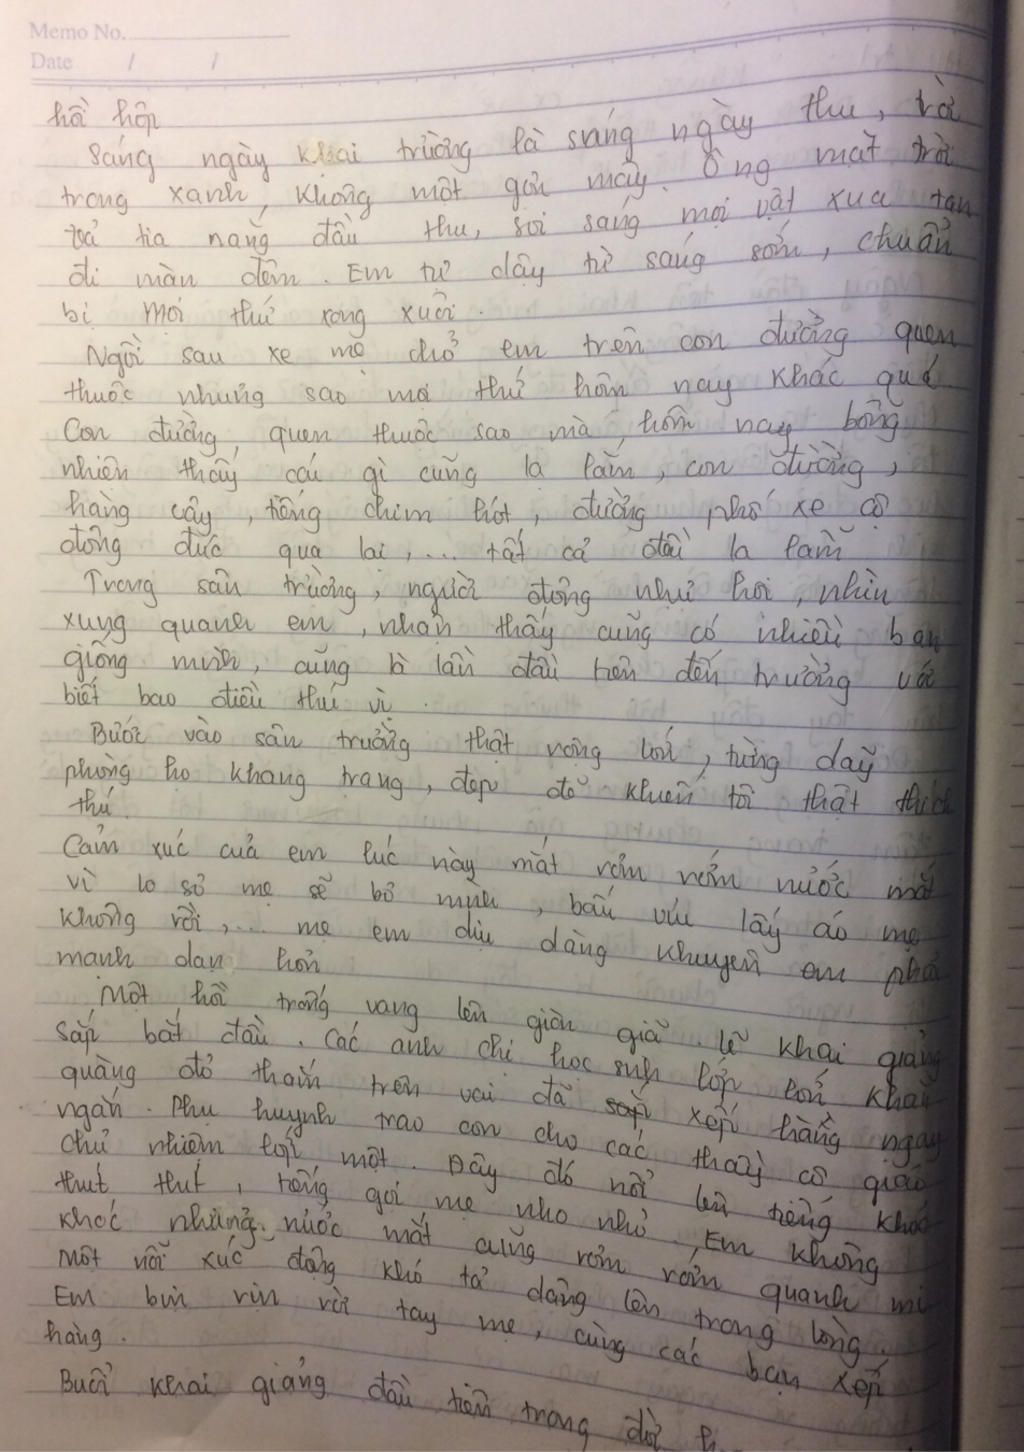 Memo No.
Date / /
hồi hộp
Sáng ngày khai trường là sáng ngày thu, trời
trong xanh, không một gợn mây. Ông mặt trời
toả tia nắng đầu thu, soi sáng mọi vật xua tan
đi màn đêm. Em tự dậy từ sáng sớm, chuẩn
bị mọi thứ xong xuôi.
Ngồi sau xe mẹ chở em trên con đường quen
thuộc nhưng sao mọi thứ hôm nay khác quá
Con đường, quen thuộc sao mà, hôm nay bỗng
nhiên thấy cái gì cũng lạ lắm, con đường,
hàng cây, tiếng chim hót, đường phố xe cộ
đông đúc qua lại, ... tất cả đều lạ lắm
Trong sân trường, người đông như hội, nhìn
xung quanh em, nhận thấy cũng có nhiều bạn
giống mình, cũng là lần đầu tiên đến trường với
biết bao điều thú vị.
Bước vào sân trường thật rộng lớn, từng dãy
phòng họ khang trang, đẹp đẽ khiến tôi thật thích
thú.
Cảm xúc của em lúc này mắt rơm rớm nước mắt
vì lo sợ mẹ sẽ bỏ mình, bấu víu lấy áo mẹ
không rời, ... mẹ em dịu dàng khuyên em phải
mạnh dạn hơn
Một hồi trống vang lên giòn giã. lễ khai giảng
sắp bắt đầu. Các anh chị học sinh lớp lớn khăn
quàng đỏ thắm trên vai đã xếp hàng ngay
ngắn. Phụ huynh trao con cho các thầy cô giáo
chủ nhiệm lớp một. Đây đó nổi lên tiếng khóc
thút thít, tiếng gọi mẹ nho nhỏ, Em không
khóc nhưng nước mắt cũng rơm rơm quanh mi
Một nỗi xúc động khó tả dâng lên trong lòng.
Em bịn rịn rời tay mẹ, cùng các bạn xếp
hàng.
Buổi khai giảng đầu tiên trong đời